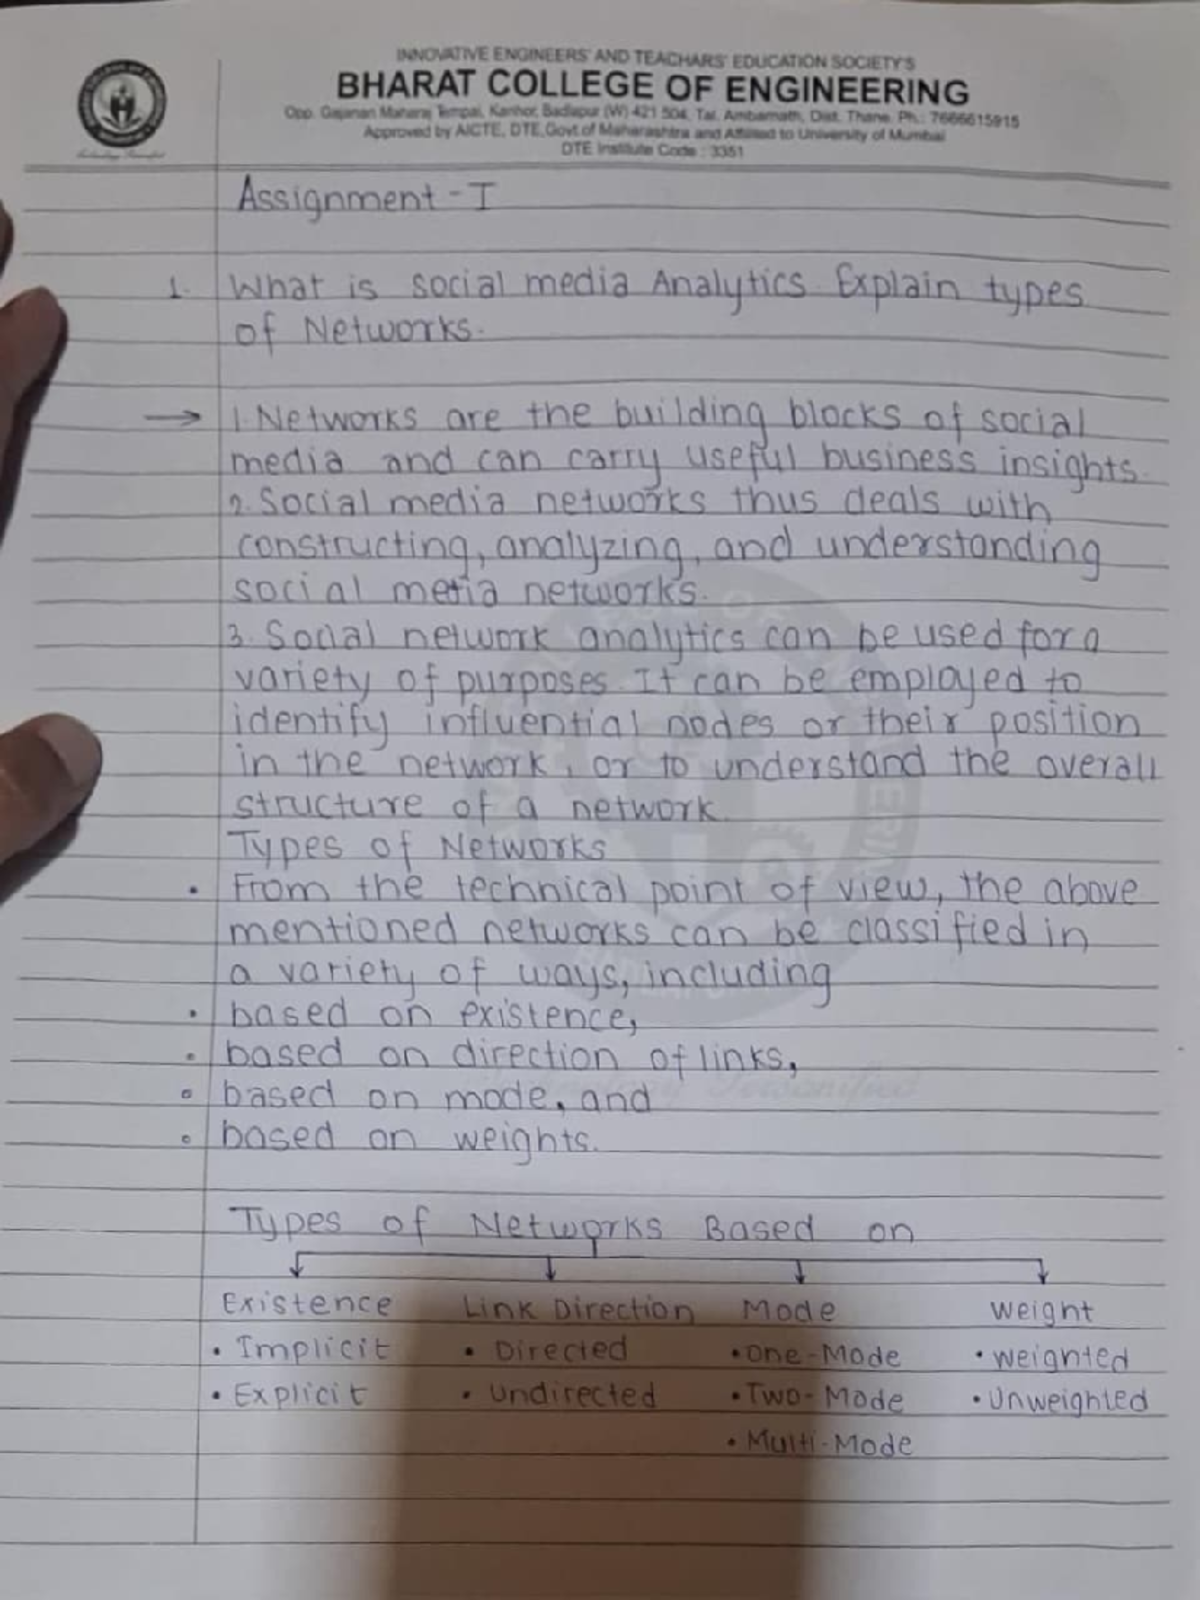 INNOVATIVE ENGINEERS' AND TEACHARS' EDUCATION SOCIETY'S
BHARAT COLLEGE OF ENGINEERING
Opp. Gajanan Maharaj Tempal, Kanhor, Badlapur (W) 421 504, Tal. Ambarnath, Dist. Thane. Ph.: 7666615915
Approved by AICTE, DTE,Govt.of Maharashtra and Affilied to University of Mumbai
DTE Institute Code : 3351
Assignment - I
1. What is social media Analytics. Explain types
of Networks.
→ 1. Networks are the building blocks of social
media and can carry useful business insights.
2. Social media networks thus deals with
constructing, analyzing, and understanding
social metia networks.
3. Social network analytics can be used for a
variety of purposes. It can be employed to
identify influential nodes or their position
in the network, or to understand the overall
structure of a network.
Types of Networks
• From the technical point of view, the above
mentioned networks can be classified in
a variety of ways, including
• based on existence,
• based on direction of links,
• based on mode, and
• based on weights.
Types of Networks Based on
Existence Link Direction Mode Weight
• Implicit • Directed • One-Mode • Weighted
• Explicit • Undirected • Two-Mode • Unweighted
• Multi-Mode